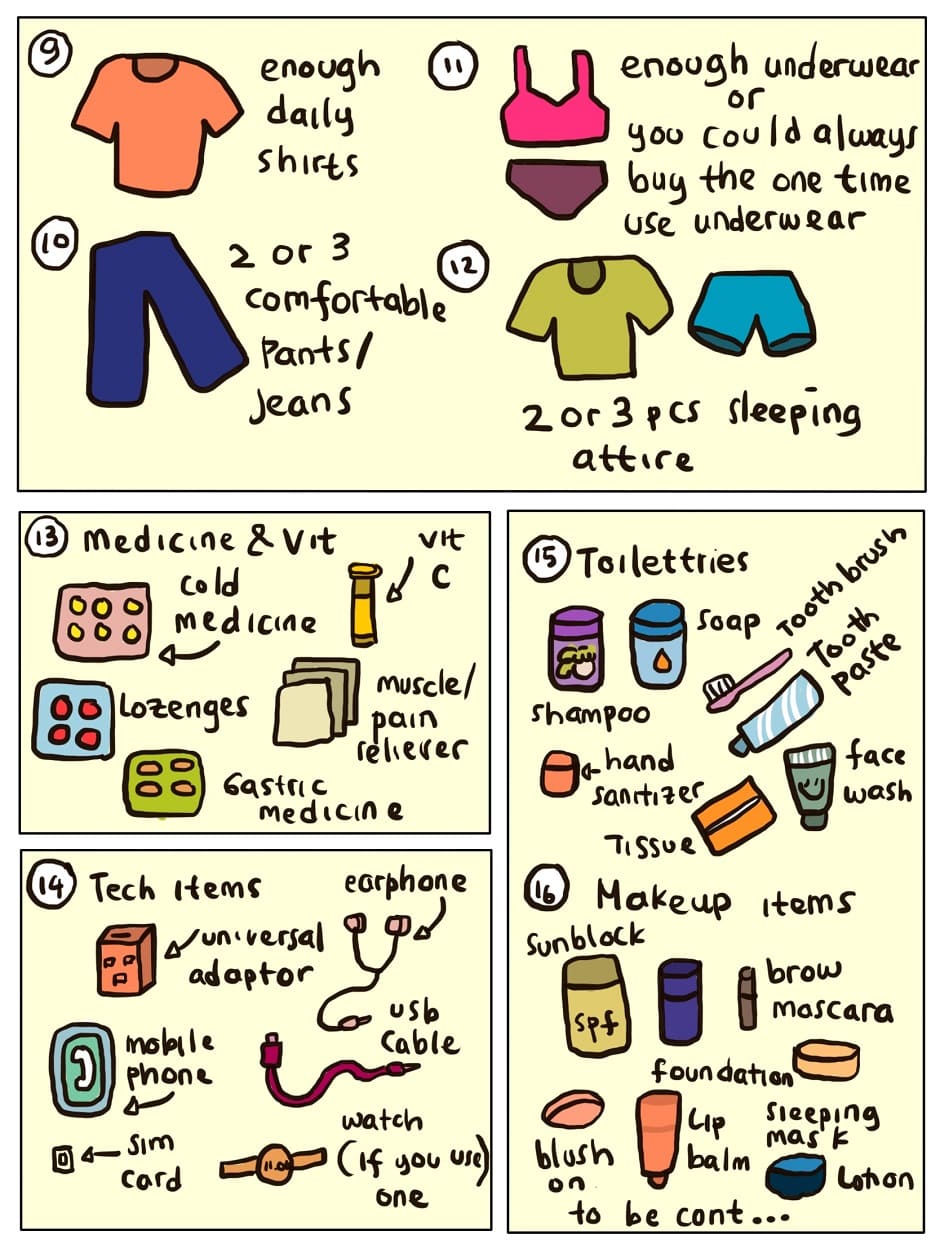 9
enough
daily
shirts
10
2 or 3
comfortable
Pants/
Jeans
11
enough underwear
or
you could always
buy the one time
use underwear
12
2 or 3 pcs sleeping
attire
13 Medicine & Vit
cold
medicine
Vit
C
Lozenges
muscle/
pain
reliever
Gastric
medicine
14 Tech Items
earphone
universal
adaptor
usb
cable
mobile
phone
sim
card
watch
(if you use)
one
11.00
15 Toilettries
shampoo
soap
Tooth brush
Tooth
paste
hand
sanitizer
face
wash
Tissue
16 Makeup items
sunblock
spf
brow
mascara
foundation
blush
on
Lip
balm
sleeping
mask
Lotion
to be cont...